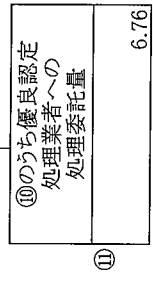 ⑩のうち優良認定
処理業者への
処理委託量
⑪
6.76